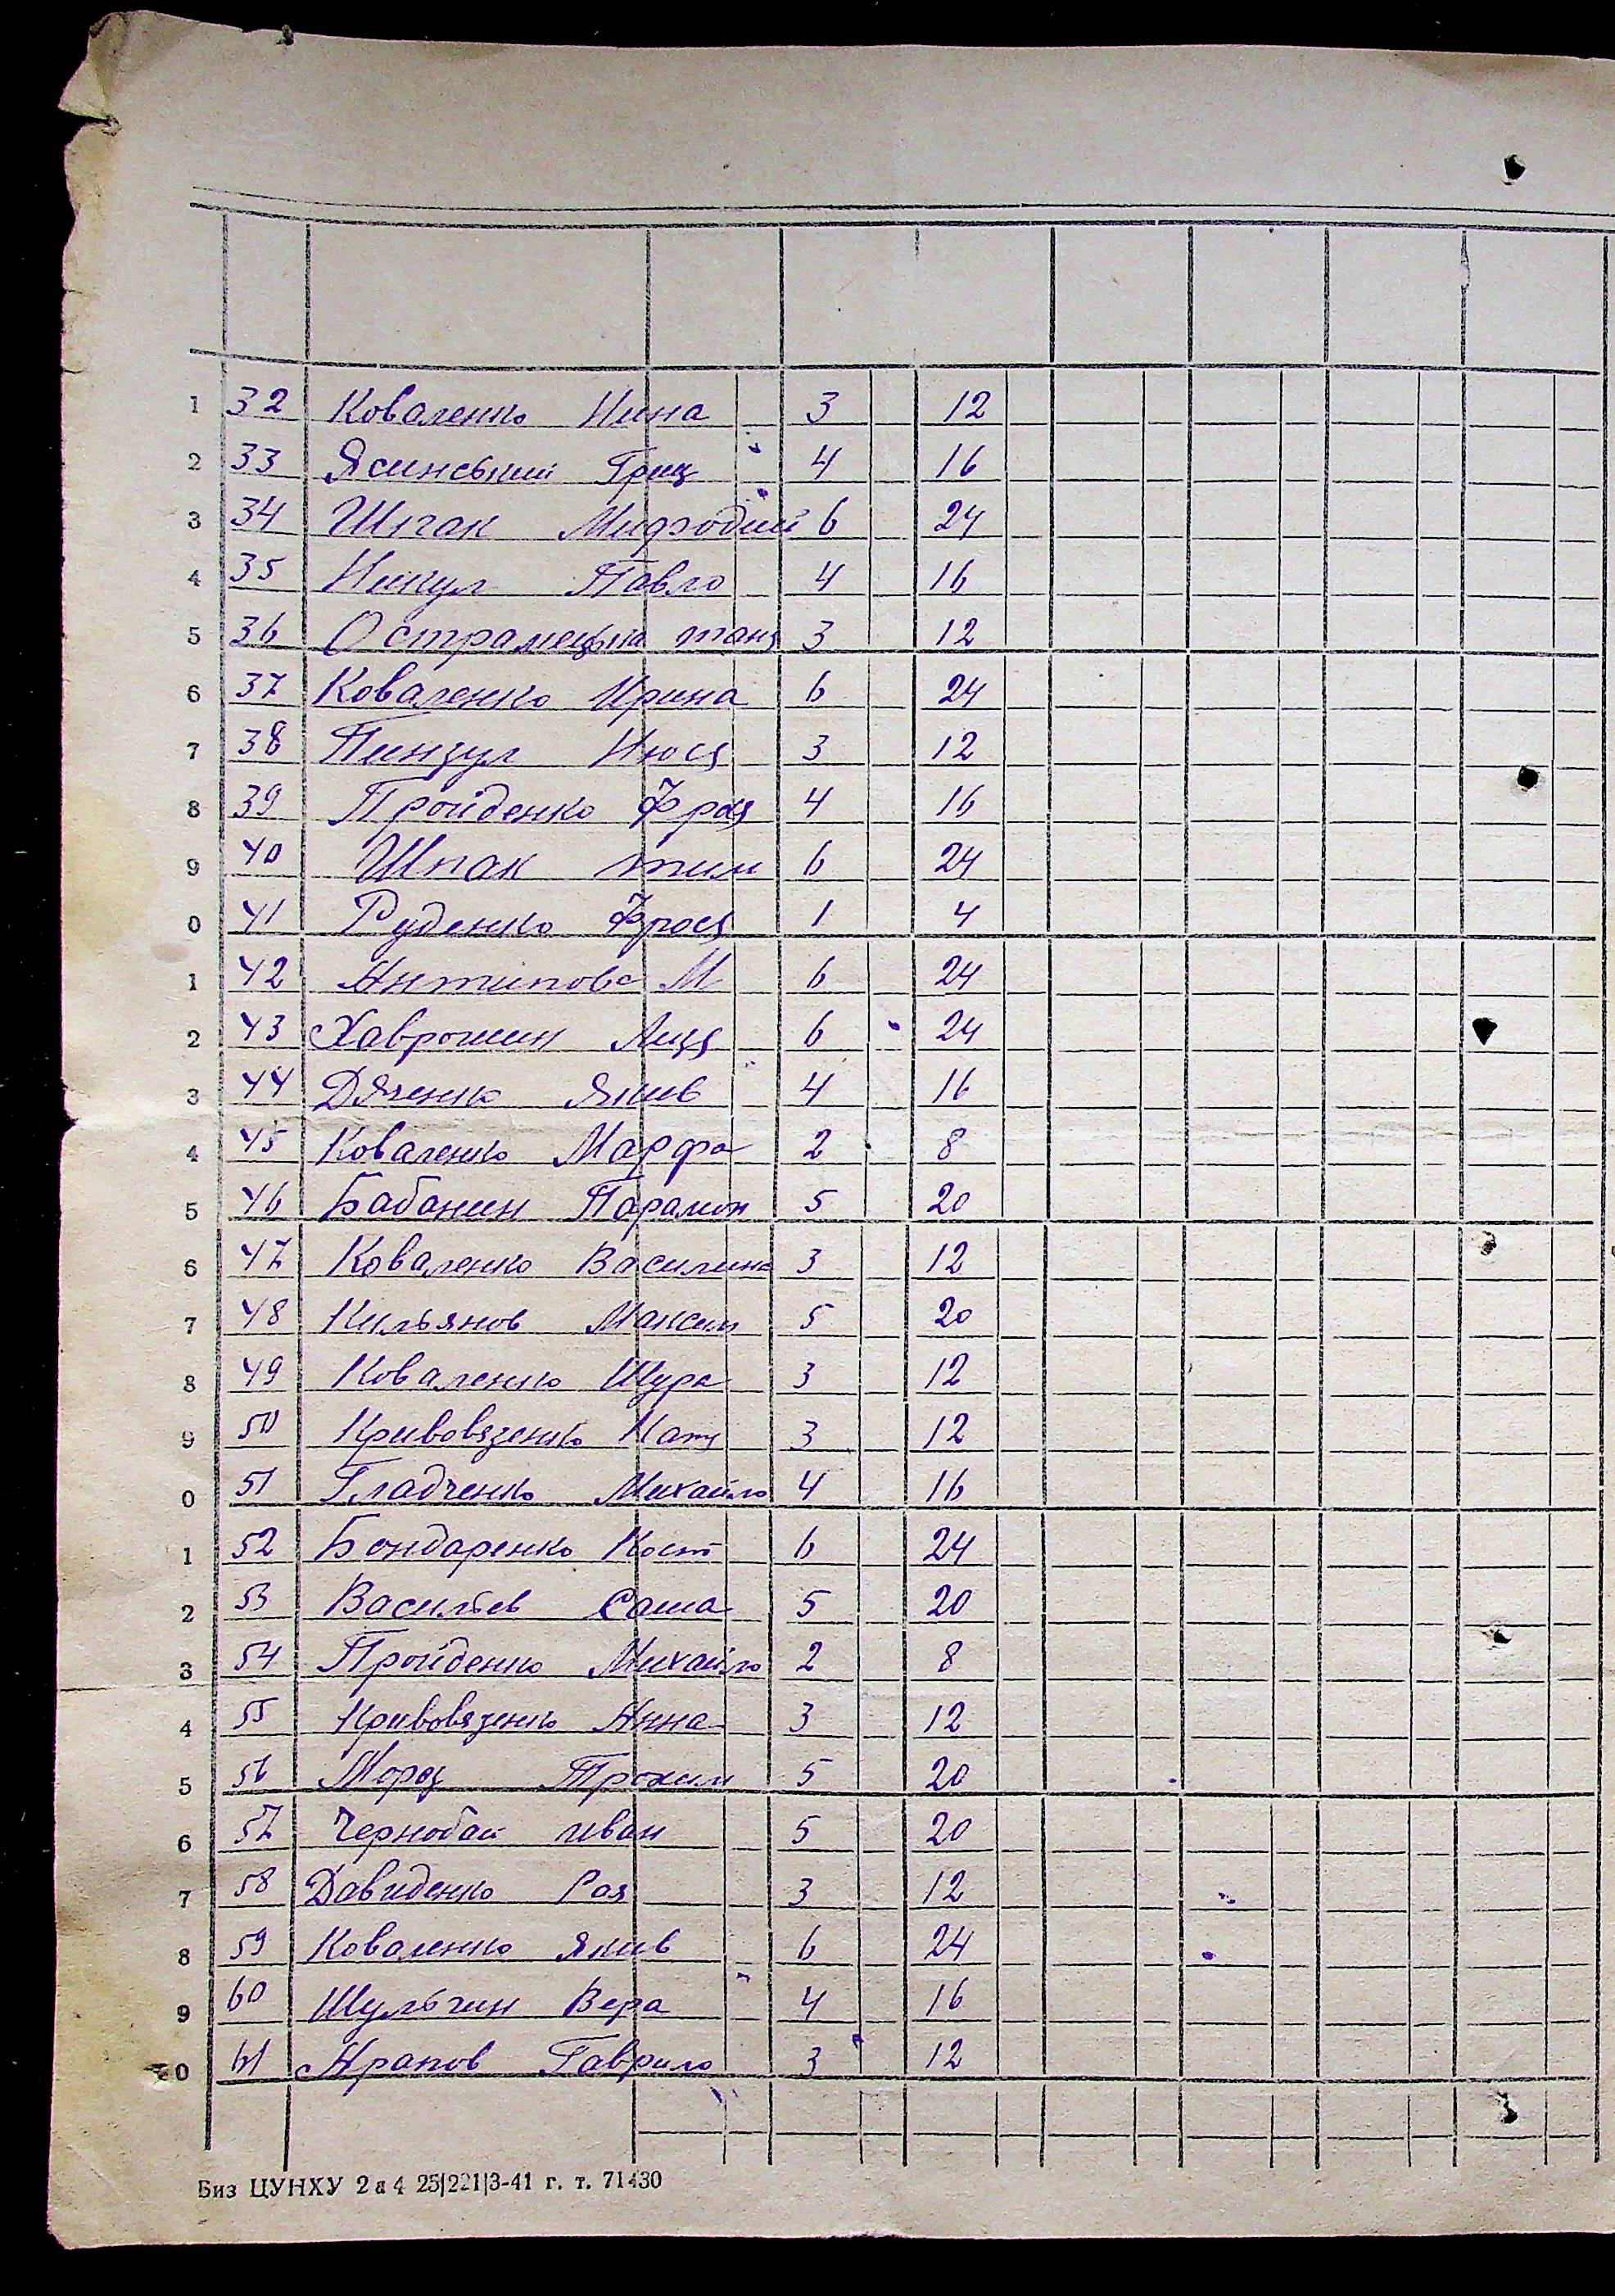 1 32 Коваленко Нина 3 12
2 33 Ясинський Гриц 4 16
3 34 Шпак Мифодий 6 24
4 35 Никул Павло 4 16
5 36 Остранецька таня 3 12
6 37 Коваленко Ирина 6 24
7 38 Пинзул Нюся 3 12
8 39 Пройденко 4 16
9 40 Шпак тим 6 24
0 41 Руденко Фрося 1 4
1 42 Антипова М 6 24
2 43 Хаврошин 6 24
3 44 Дяченко Якив 4 16
4 45 Коваленко Марфа 2 8
5 46 Бабанин Парамон 5 20
6 47 Коваленко Василина 3 12
7 48 Кильянов Максим 5 20
8 49 Коваленко Шура 3 12
9 50 Кривовязенко Катя 3 12
0 51 Гладченко Михайло 4 16
1 52 Бондаренко Кост 6 24
2 53 Васильев Саша 5 20
3 54 Пройденко Михайло 2 8
4 55 Кривовязенко Анна 3 12
5 56 Мороз Трохим 5 20
6 57 Чернобай иван 5 20
7 58 Давиденко Рая 3 12
8 59 Коваленко Якив 6 24
9 60 Шульгин Вера 4 16
0 61 Арапов Гаврило 3 12
Биз ЦУНХУ 2 а 4 25|221|3-41 г. т. 71430